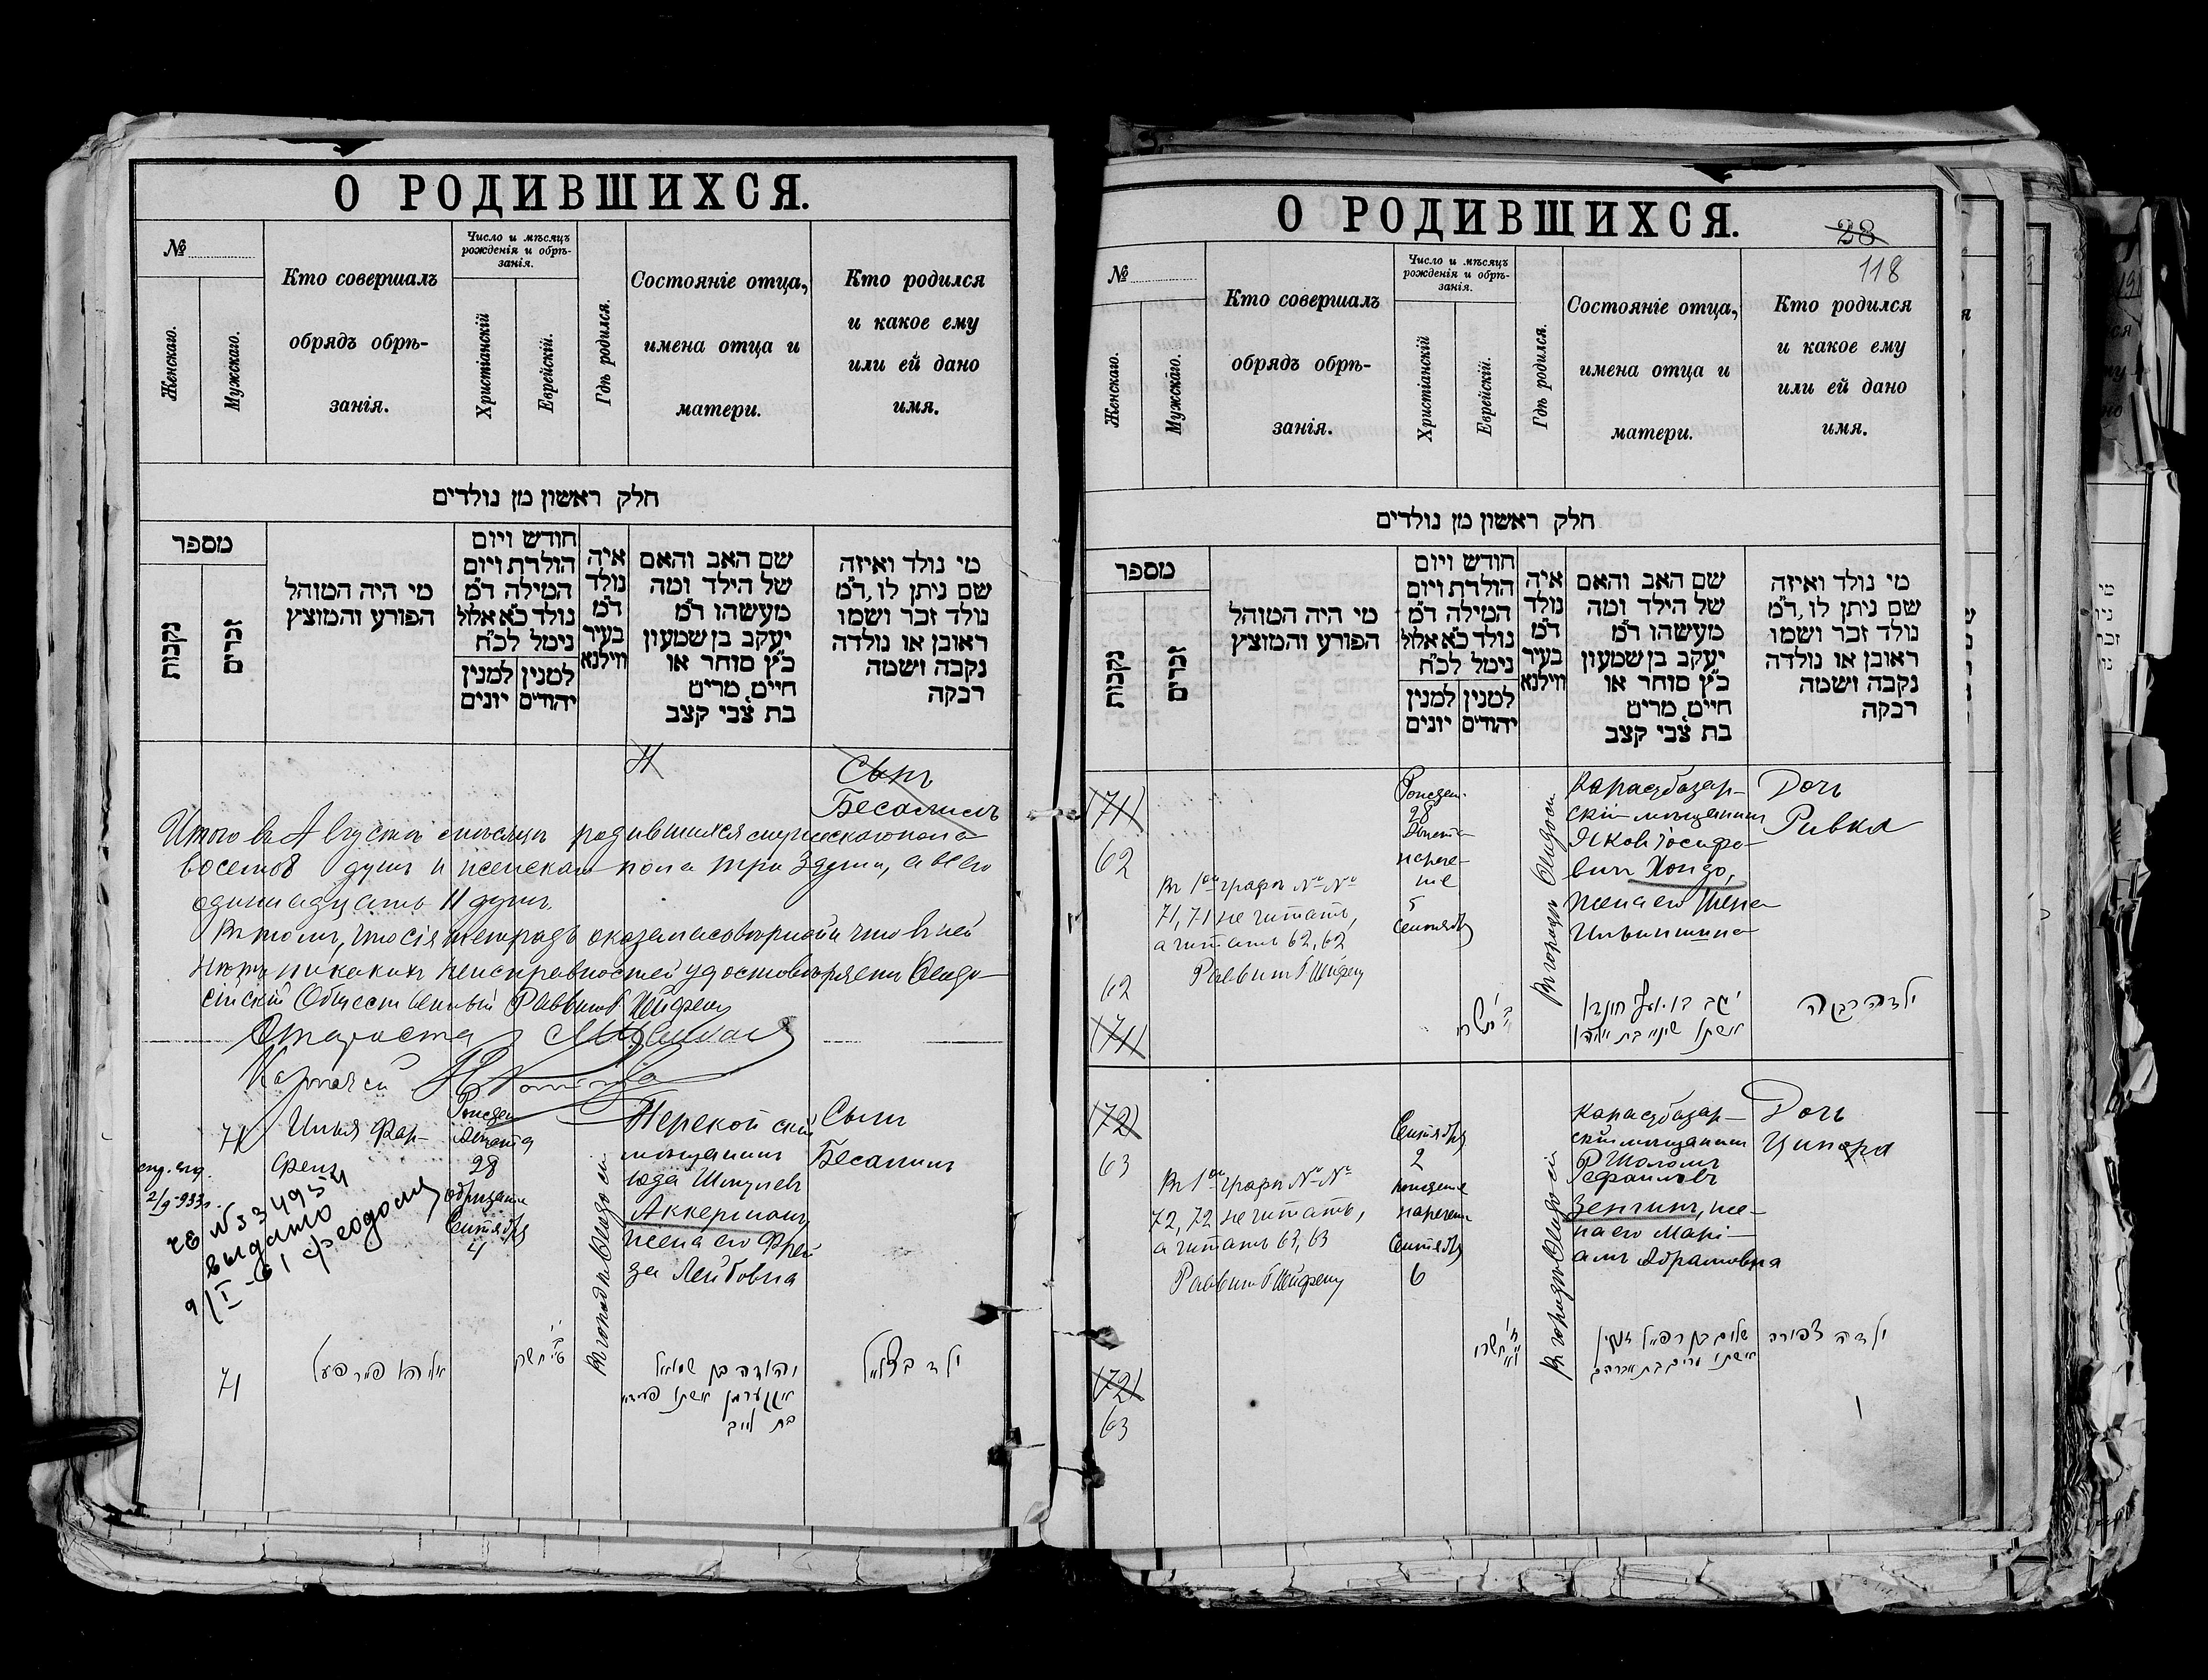 О РОДИВШИХСЯ.
№
Женскаго.
Мужскаго.
Кто совершалъ
обрядъ обрѣ-
занія.
Число и мѣсяцъ
рожденія и обрѣ-
занія.
Христіанскій
Еврейскій.
Гдѣ родился.
Состояніе отца,
имена отца и
матери.
Кто родился
и какое ему
или ей дано
имя.
חלק ראשון מן נולדים
מספר
נקבות
זכרים
מי היה המוהל
הפורע והמוצץ
חודש ויום
הולדת ויום
המילה ד״מ
נולד כ״א אלול
נימל לכ״ח
למנין יונים
למנין יהודים
איה
נולד
ד״מ
בעיר
ווילנא
שם האב והאם
של הילד ומה
מעשהו ד״מ
יעקב בן שמעון
כ״ץ סוחר או
חייט, מרים
בת צבי קצב
מי נולד ואיזה
שם ניתן לו, ד״מ
נולד זכר ושמו
ראובן או נולדה
נקבה ושמה
רבקה
Сынъ
Бесалилъ
Итого въ Августѣ мѣсяцѣ родившихся мужескаго пола
восемь 8 душъ и женскаго пола три 3 души, а всего
одинадцать 11 душъ.
Въ томъ, что сія тетрадь оказалась вѣрной и что въ ней
нѣтъ никакихъ неисправностей удостовѣряетъ Ѳеодо-
сійскій Общественный Раввинъ
Староста
Казначей
71
Илья Фар-
френъ
Рожден
Августа
28
обрезанъ
Сентября
4
Въ городѣ Ѳеодосіи
Перекопскій
мѣщанинъ
Юда Шмулевъ
Аккерманъ,
жена его Фрей
за Лейбовна
Сынъ
Бесалилъ
2/9-933г.
ЧЕ № 334954
выдано
9/I-61 Феодосия
71
יהודה בן שמואל
אקערמן אשתו פריידא
בת לייב
ילד בצלאל
О РОДИВШИХСЯ.
28
118
№
Женскаго.
Мужскаго.
Кто совершалъ
обрядъ обрѣ-
занія.
Число и мѣсяцъ
рожденія и обрѣ-
занія.
Христіанскій
Еврейскій.
Гдѣ родился.
Состояніе отца,
имена отца и
матери.
Кто родился
и какое ему
или ей дано
имя.
חלק ראשון מן נולדים
מספר
נקבות
זכרים
מי היה המוהל
הפורע והמוצץ
חודש ויום
הולדת ויום
המילה ד״מ
נולד כ״א אלול
נימל לכ״ח
למנין יונים
למנין יהודים
איה
נולד
ד״מ
בעיר
ווילנא
שם האב והאם
של הילד ומה
מעשהו ד״מ
יעקב בן שמעון
כ״ץ סוחר או
חייט, מרים
בת צבי קצב
מי נולד ואיזה
שם ניתן לו, ד״מ
נולד זכר ושמו
ראובן או נולדה
נקבה ושמה
רבקה
(71)
62
Въ 1ой графѣ №№
71, 71 не читать,
а читать 62, 62
Раввинъ
62
(71)
Рожден.
28
Августа
нарече-
ніе
5
Сентября
Въ городѣ Ѳеодосіи
Карасубазар-
скій мѣщанинъ
Яковъ Іосифо-
вичъ Хондо,
жена его Шеня
Дочь
Ривка
ילדה רבקה
(72)
63
Въ 1ой графѣ №№
72, 72 не читать,
а читать 63, 63
Раввинъ
Сентября
2
рожденіе
наречен
Сентября
6
Въ городѣ Ѳеодосіи
Карасубазар-
скій мѣщанинъ
Шоломъ
Рефаиловъ
Зенгинъ, же-
на его Марі-
амъ Абрамовна
Дочь
Ципора
שלום בן רפאל זנגין
אשתו מרים בת אברהם
ילדה צפורה
(72)
63